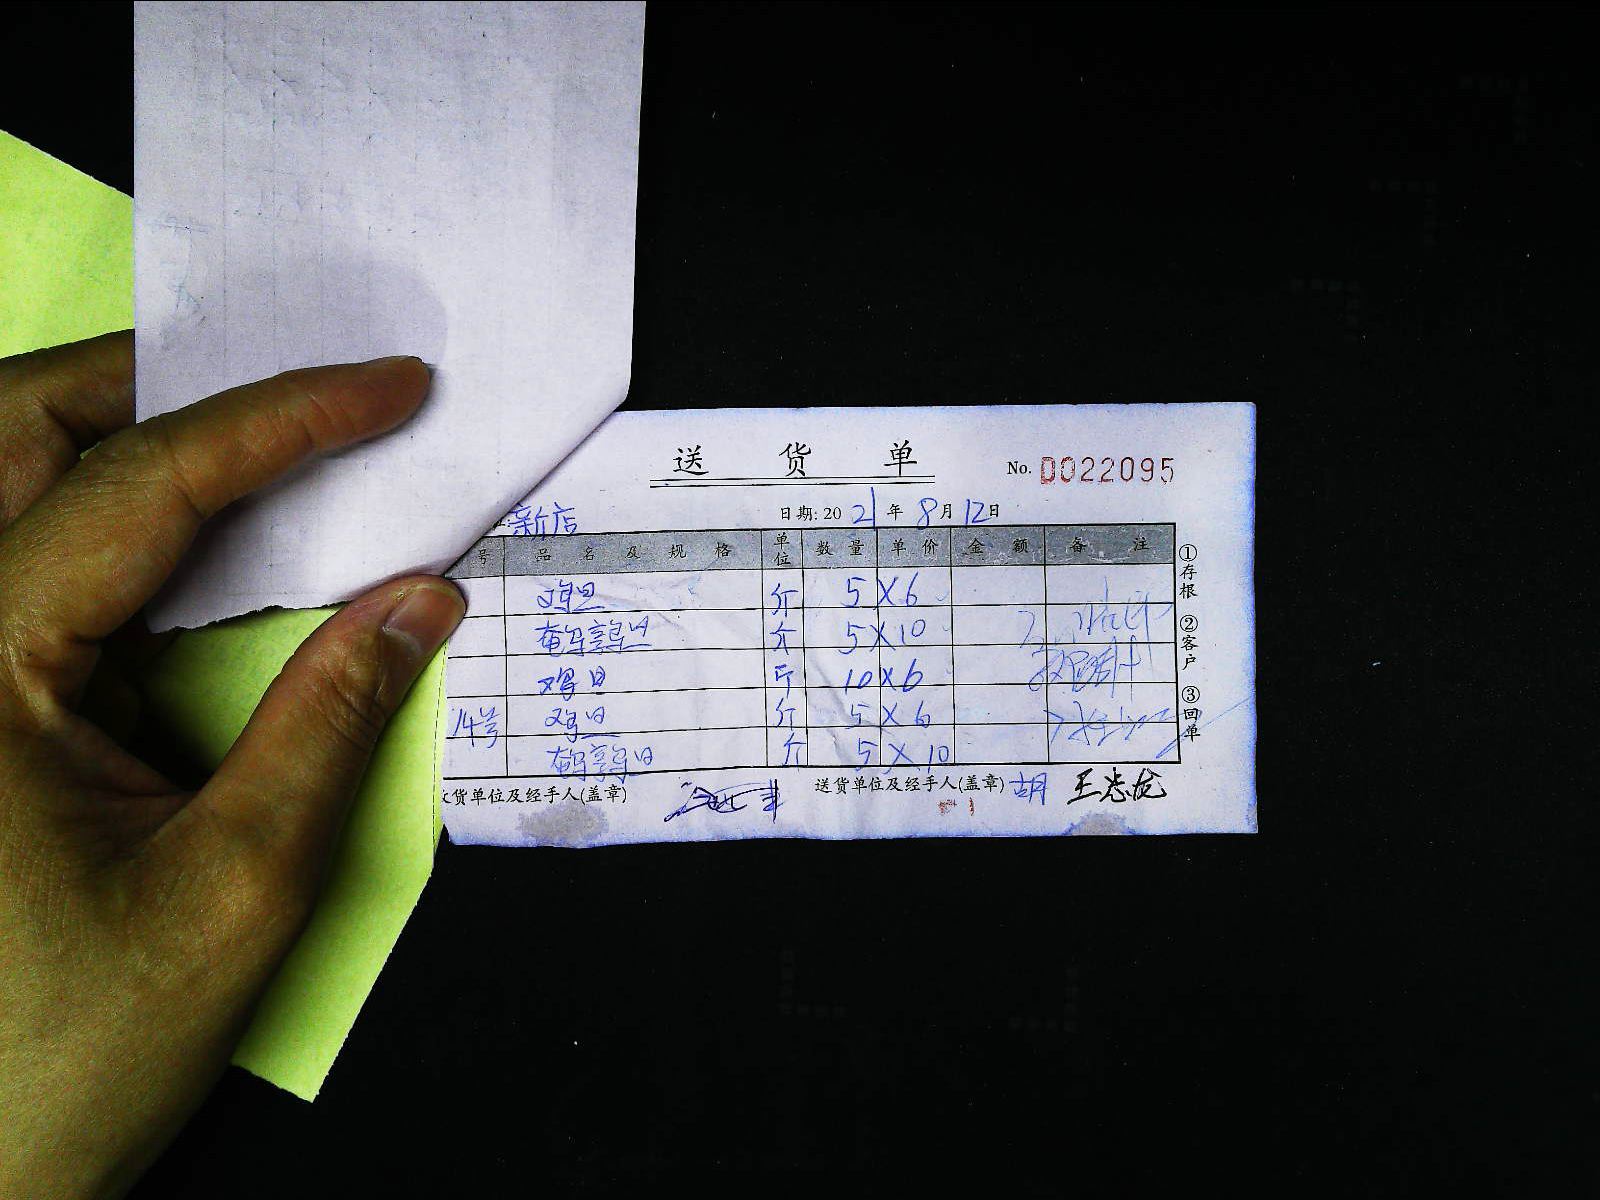 送 货 单
No. D022095
新店 日期: 2021 年 8 月 12 日
号 品 名 及 规 格 单位 数 量 单 价 金 额 备 注
鸡旦 斤 5 X 6
奄鸟享鸟旦 斤 5 X 10
鸡旦 斤 10 X 6
14号 鸡旦 斤 5 X 6
奄鸟享鸟旦 斤 5 X 10
货单位及经手人(盖章) 送货单位及经手人(盖章) 胡 王志龙
①存根 ②客户 ③回单